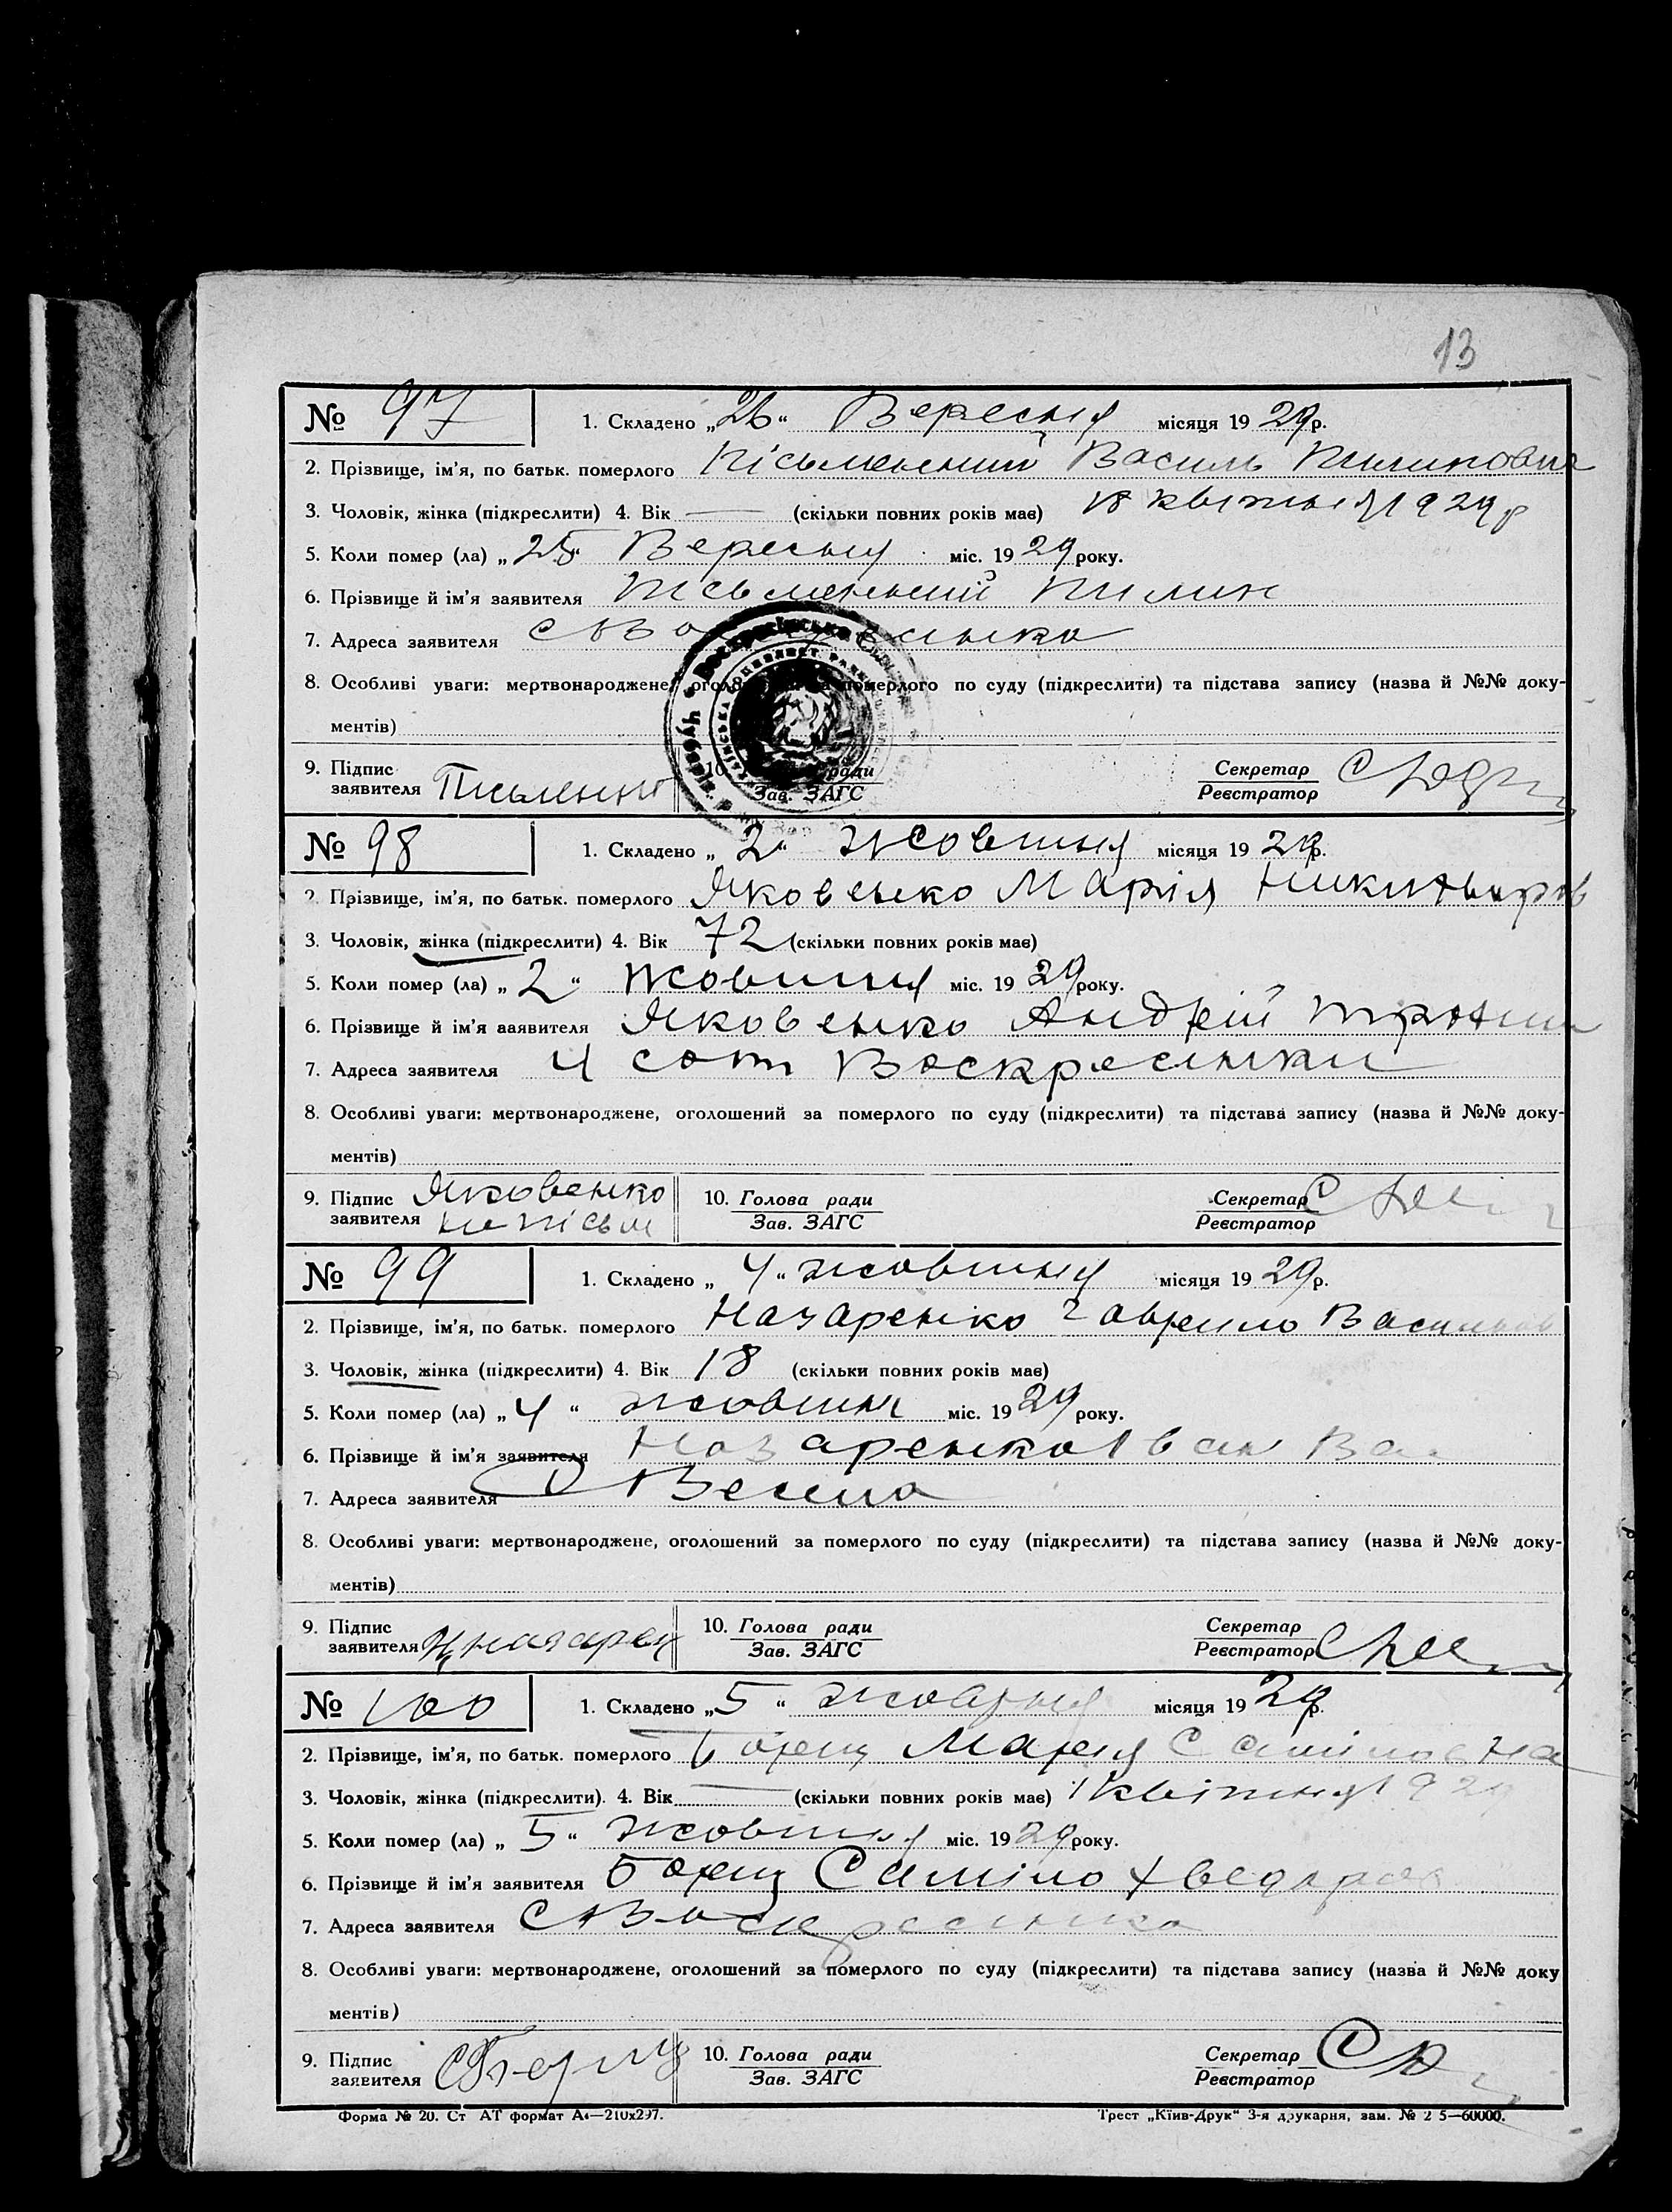 13
№ 97 1. Складено „26“ Вересня місяця 1929р.
2. Прізвище, ім'я, по батьк. померлого Пісьменний Василь Пилипович
3. Чоловік, жінка (підкреслити) 4. Вік — (скільки повних років має) 18 квітня 1929 р
5. Коли помер (ла) „25“ Вересня міс. 1929 року.
6. Прізвище й ім'я заявителя Пісьменний Пилип
7. Адреса заявителя с
8. Особливі уваги: мертвонароджене, померлого по суду (підкреслити) та підстава запису (назва й №№ доку-
ментів)
9. Підпис заявителя Письменний 10. ради Зав. ЗАГС Секретар Реєстратор
№ 98 1. Складено „2“ Жовтня місяця 1929р.
2. Прізвище, ім'я, по батьк. померлого Яковенко Марія
3. Чоловік, жінка (підкреслити) 4. Вік 72 (скільки повних років має)
5. Коли помер (ла) „2“ Жовтня міс. 1929 року.
6. Прізвище й ім'я заявителя Яковенко Андрій
7. Адреса заявителя 4 сот Воскресінки
8. Особливі уваги: мертвонароджене, оголошений за померлого по суду (підкреслити) та підстава запису (назва й №№ доку-
ментів)
9. Підпис заявителя Яковенко непісьм 10. Голова ради Зав. ЗАГС Секретар Реєстратор
№ 99 1. Складено „4“ жовтня місяця 1929р.
2. Прізвище, ім'я, по батьк. померлого Назаренко Гаврило Васильов
3. Чоловік, жінка (підкреслити) 4. Вік 18 (скільки повних років має)
5. Коли помер (ла) „4“ жовтня міс. 1929 року.
6. Прізвище й ім'я заявителя Назаренко Іван Ва
7. Адреса заявителя
8. Особливі уваги: мертвонароджене, оголошений за померлого по суду (підкреслити) та підстава запису (назва й №№ доку-
ментів)
9. Підпис заявителя 10. Голова ради Зав. ЗАГС Секретар Реєстратор
№ 100 1. Складено „5“ жовтня місяця 1929р.
2. Прізвище, ім'я, по батьк. померлого Марія Самілівна
3. Чоловік, жінка (підкреслити). 4. Вік — (скільки повних років має) 1 квітня 1929
5. Коли помер (ла) „5“ жовтня міс. 1929 року.
6. Прізвище й ім'я заявителя Саміло
7. Адреса заявителя с Воскресінка
8. Особливі уваги: мертвонароджене, оголошений за померлого по суду (підкреслити) та підстава запису (назва й №№ доку
ментів)
9. Підпис заявителя 10. Голова ради Зав. ЗАГС Секретар Реєстратор
Форма № 20. Ст АТ формат А4—210x297. Трест „Київ-Друк“ 3-я друкарня, зам. № 2 5—60000.